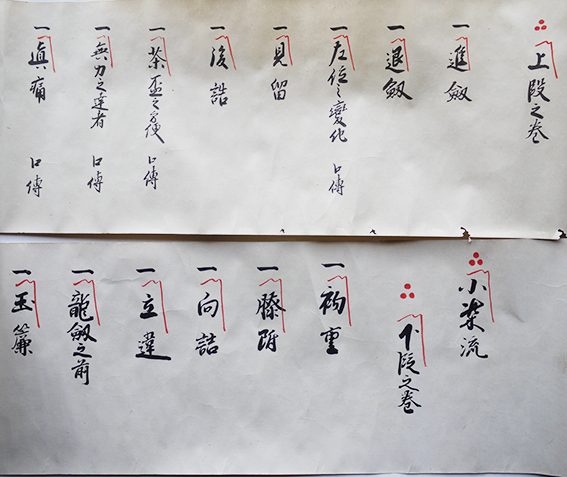 上段之巻
一 進劔
一 退劔
一 左位之變化 口傳
一 見留
一 後詰
一 茶盃之 口傳
一 無刀之達者 口傳
一 眞痛 口傳
小栗流
下段之巻
一 初重
一 膝
一 向詰
一 立違
一 龍劔之前
一 玉簾